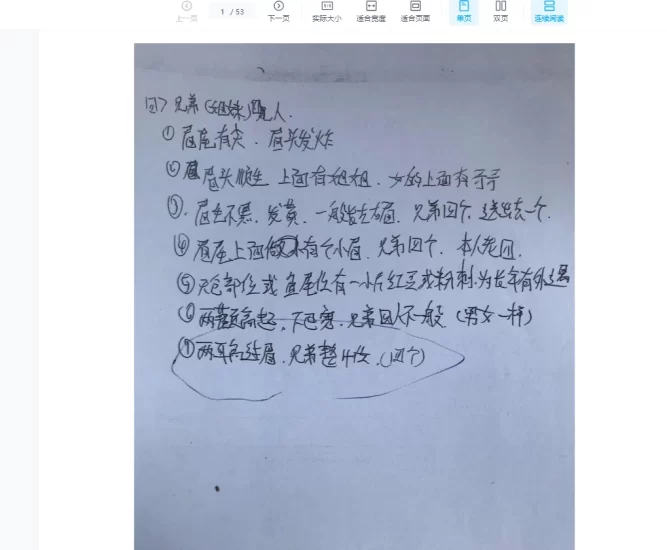 上一页 1 / 53 下一页 实际大小 适合宽度 适合页面 单页 双页 连续阅读
兄弟(姐妹)四人.
① 眉尾有尖. 眉头发炸
② 眉头顺生 上面有姐姐. 女的上面有哥哥
③. 眉毛不黑. 发黄. 一般发左右眉. 兄弟四个. 送出去一个.
④ 眉尾上面 有个小眉. 兄弟四个. 本人老四.
⑤ 部位或鱼尾位有一小片红豆或粉刺. 为长年有外遇
⑥ 两颧高起. 下巴宽. 兄弟四人不一般 (男女一样)
⑦ 两耳高过眉. 兄弟整 (四个)